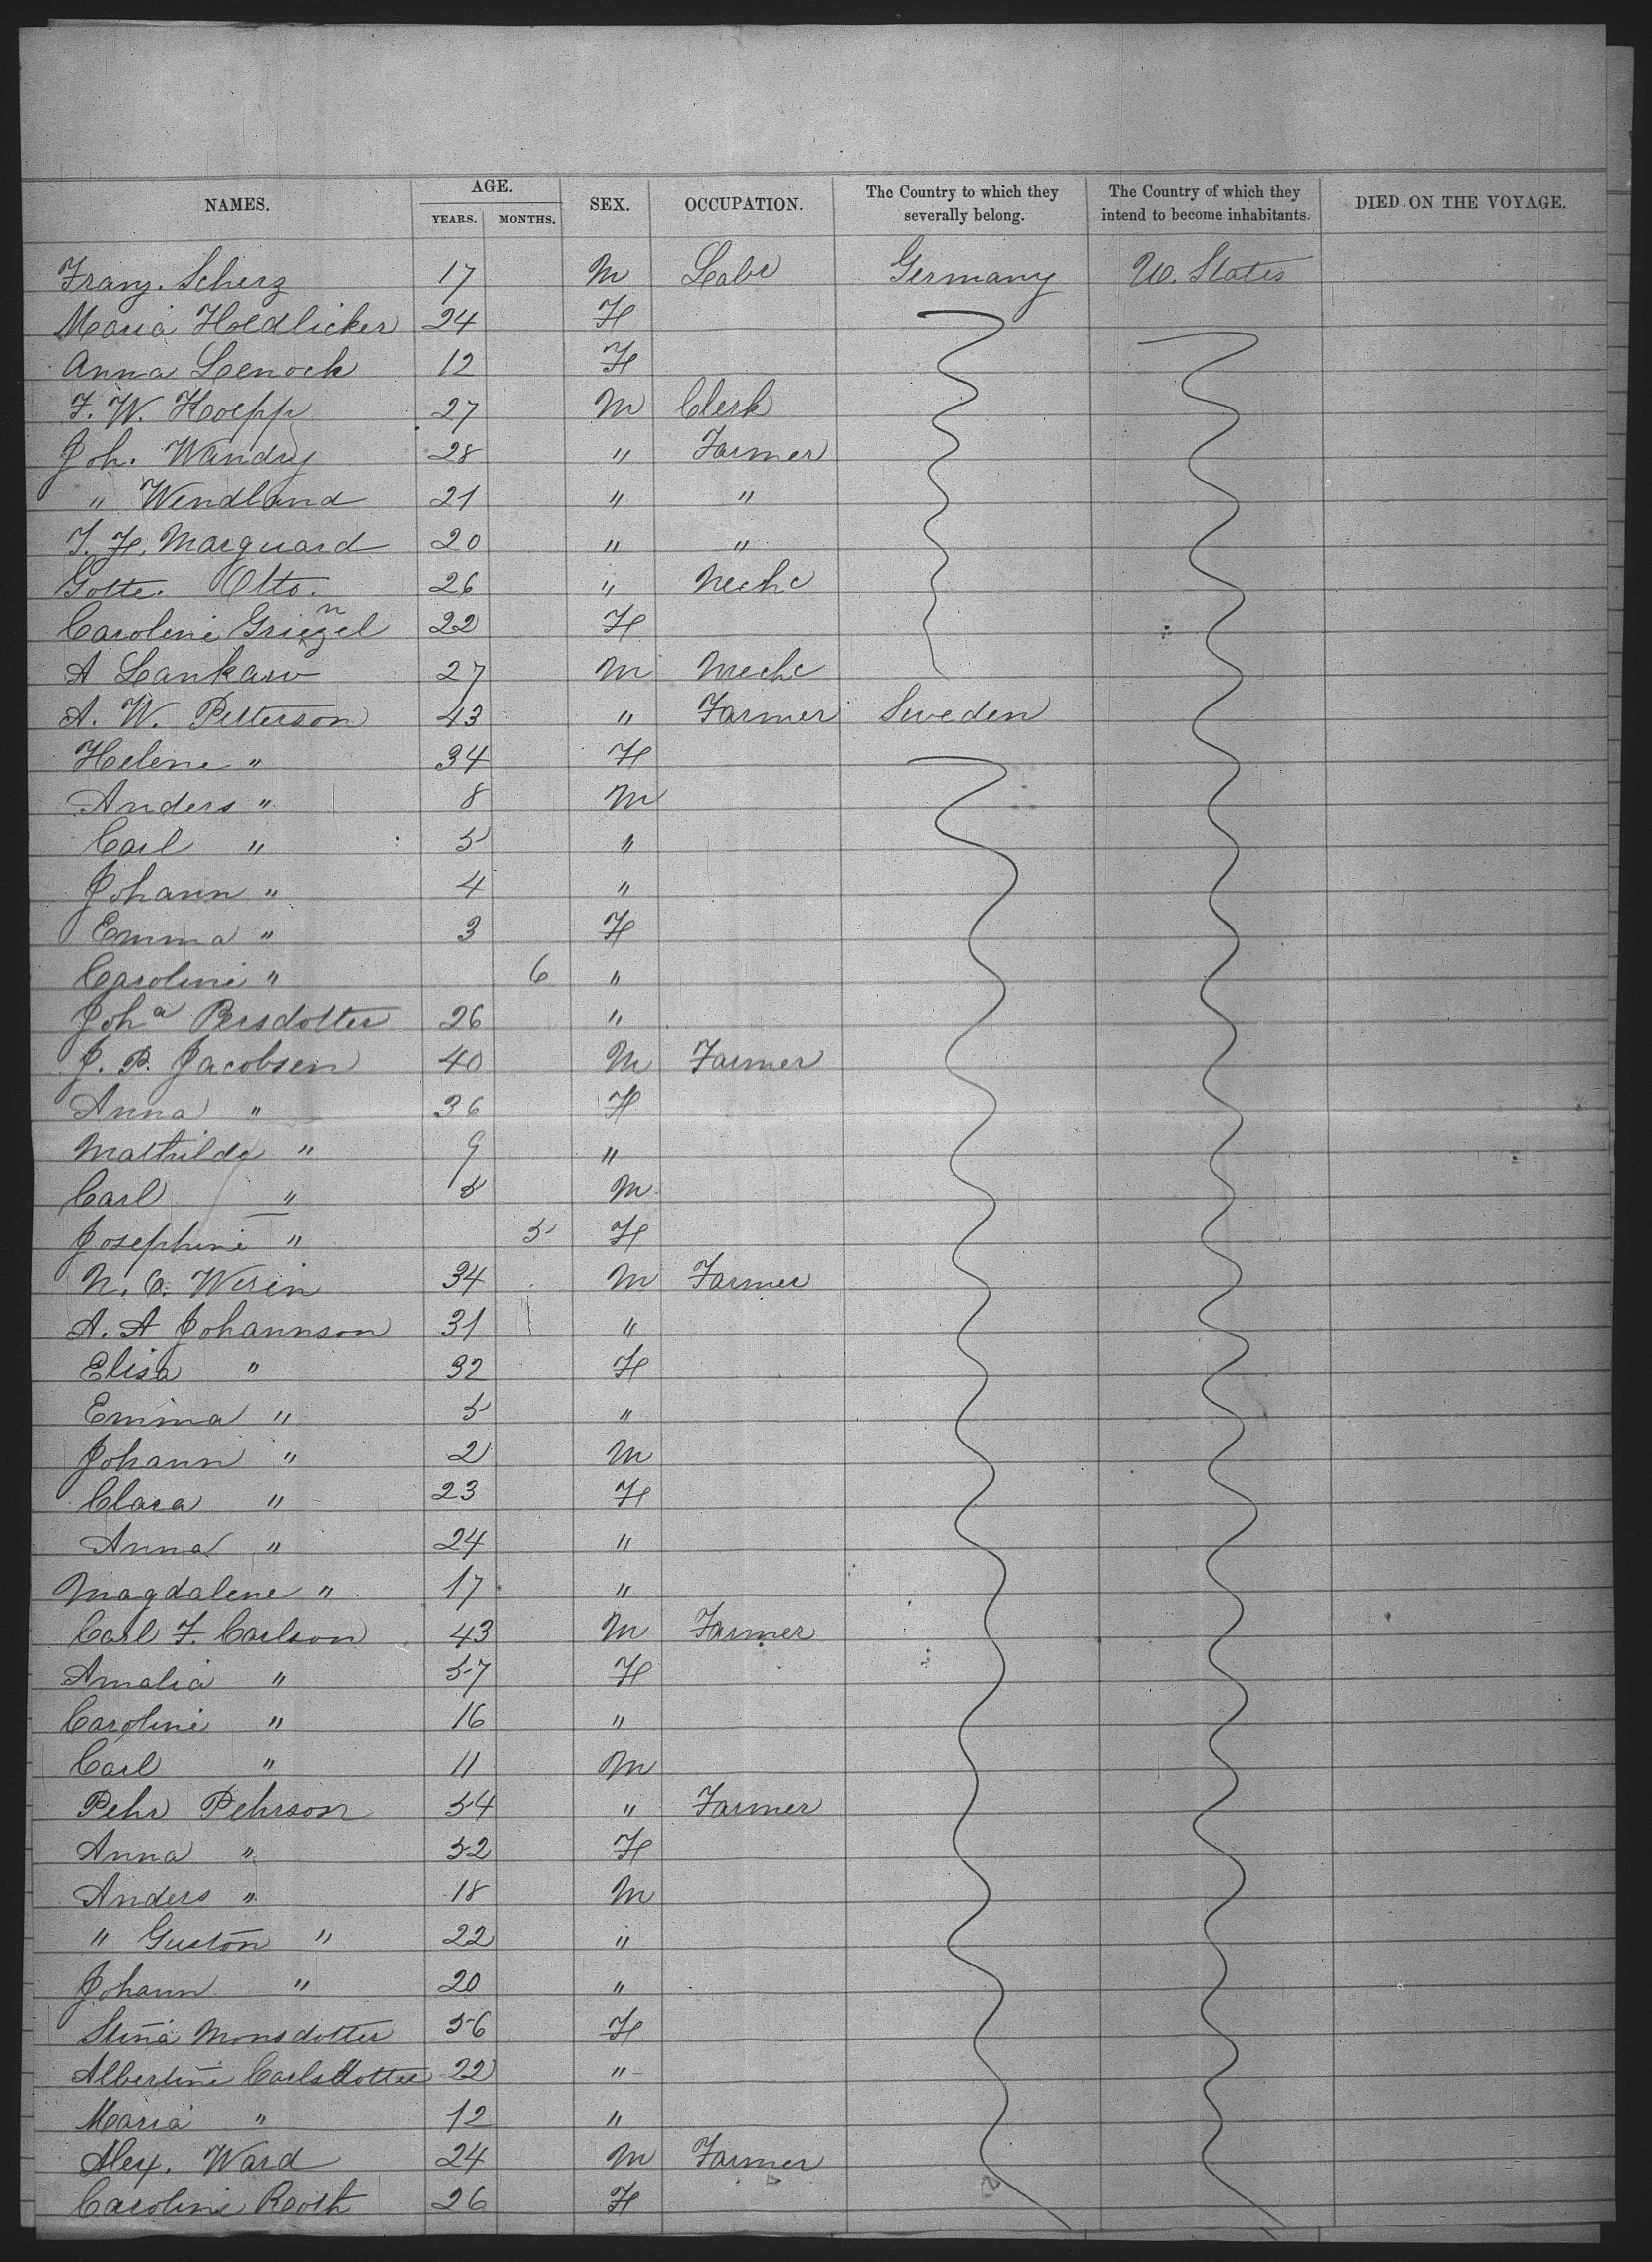 NAMES. AGE. SEX. OCCUPATION. The Country to which they severally belong. The Country of which they intend to become inhabitants. DIED ON THE VOYAGE.
YEARS. MONTHS.
Franz. Scherz 17 M Labr Germany U. States
Maria Hoedlicker 24 F
Anna Lenock 12 F
F. W. Hoepp 27 M Clerk
Joh. Wandry 28 " Farmer
" Wendland 21 " "
J. F. Marquard 20 " "
Gotte. Otto. 26 " Mechc
Caroline Grienzel 22 F
A Lankaw 27 M Mechc
A. W. Petterson 43 " Farmer Sweden
Helene " 34 F
Anders " 8 M
Carl " 5 "
Johann " 4 "
Emma " 3 F
Caroline " 6 "
Joha Persdotter 26 "
J. P. Jacobsen 40 M Farmer
Anna " 36 F
Mathilde " 9 "
Carl " 5 M
Josephine " 5 F
N. C. Werin 34 M Farmer
A. A Johannson 31 "
Elisa " 32 F
Emma " 5 "
Johann " 2 M
Clara " 23 F
Anna " 24 "
Magdalene " 17 "
Carl F. Carlson 43 M Farmer
Amalia " 57 F
Caroline " 16 "
Carl " 11 M
Pehr Pehrson 54 " Farmer
Anna " 52 F
Anders " 18 M
" Guston " 22 "
Johann " 20 "
Stina Monsdotter 56 F
Albertine Carlsdotter 22 "
Maria " 12 "
Alex. Ward 24 M Farmer
Caroline Rooth 26 F